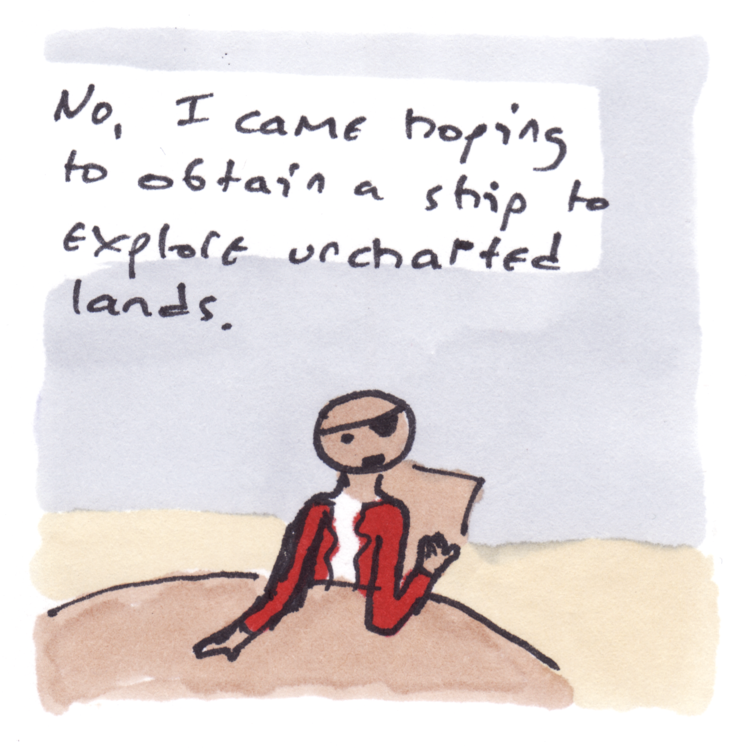 No, I came hoping
to obtain a ship to
explore uncharted
lands.